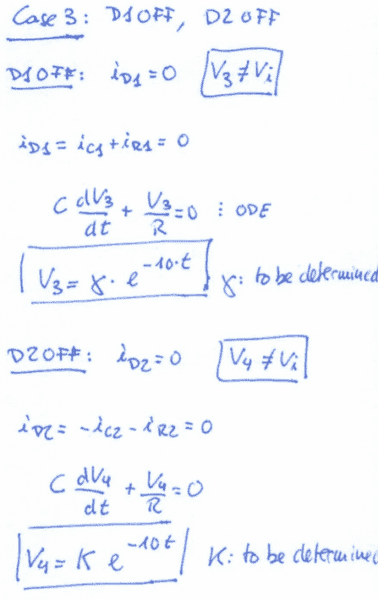 Case 3: D1 OFF, D2 OFF
D1 OFF: i_D1 = 0 V_3 ≠ V_i
i_D1 = i_C1 + i_R1 = 0
C dV_3/dt + V_3/R = 0 : ODE
V_3 = γ · e^(-10·t) γ: to be determined
D2 OFF: i_D2 = 0 V_4 ≠ V_i
i_D2 = -i_C2 - i_R2 = 0
C dV_4/dt + V_4/R = 0
V_4 = K e^(-10t) K: to be determined